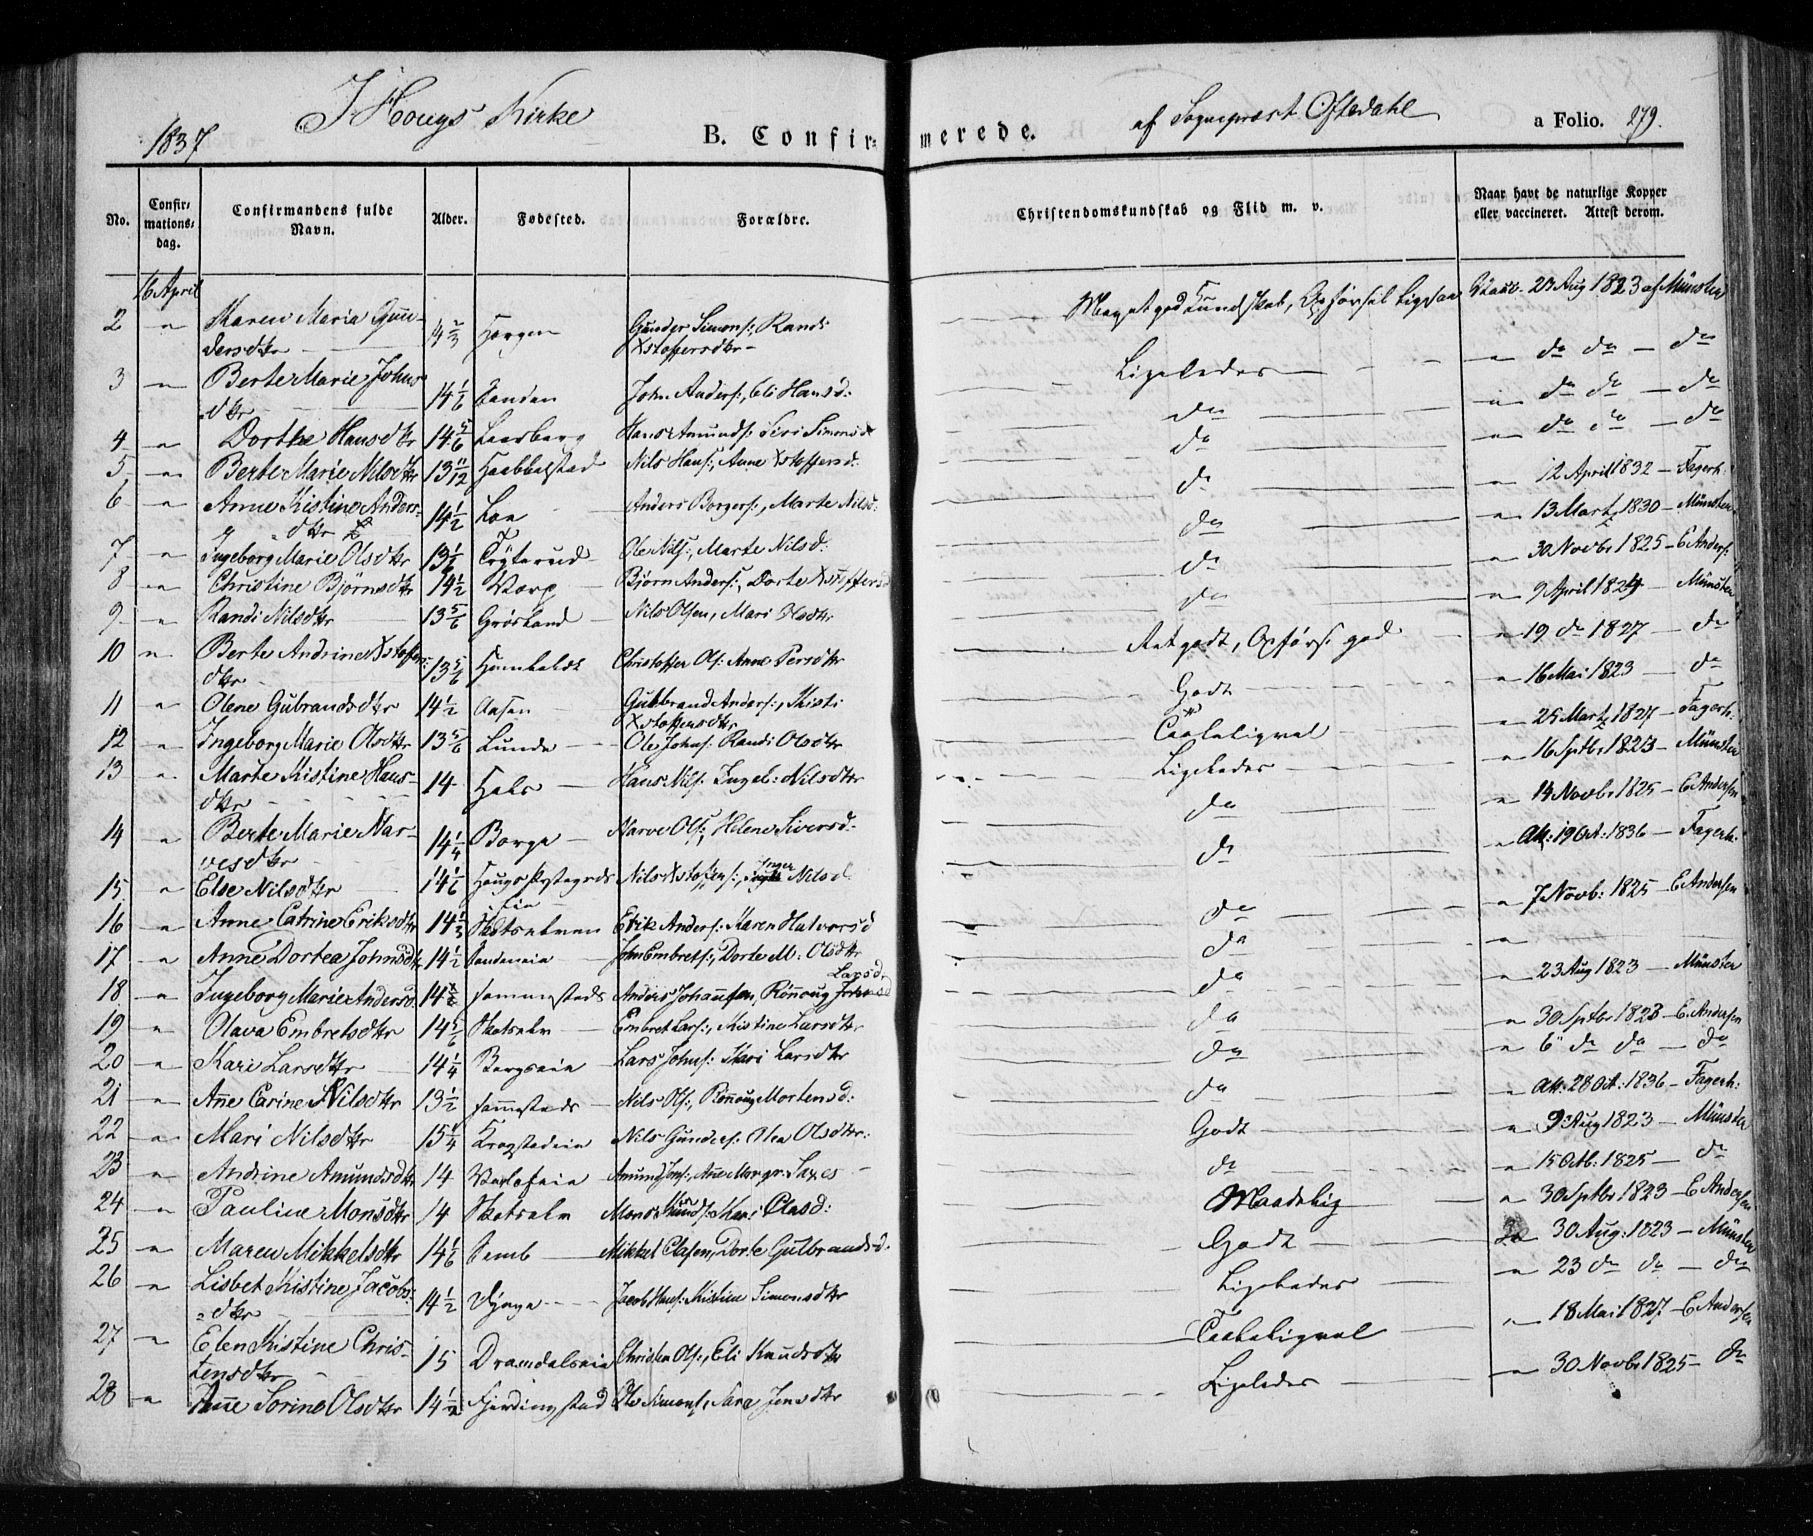 1837 I Hougs Kirke B. Confirmerede. af Sognepræst Oftedahl a Folio. 279.
No. Confirmationsdag. Confirmandens fulde Navn. Alder. Fødested. Forældre. Christendomskundskab og Flid m. v. Naar havt de naturlige Kopper eller vaccineret. Attest derom.
16 April
2 " Maren Maria Gun- Gunder Simons: Randi Meget god Kundskab, Opførsel ligesaa 23 Aug 1823 af Münster
dersdtr 14 2/3 Horgen Xstoffersdtr
3 " Berte Marie Johns
dtr 14 1/6 Sanden John Anders:, Eli Hansd: Ligeledes " do do - do
4 " Dorthe Hansdtr 14 5/6 Hans Amunds: Siri Simonsd do " do do - do
5 " Berte Marie Nilsdtr 13 11/12 Haabbelstad Nils Hans:, Anne Xstoffersd: do " do do - do
6 " Anne Kistine Anders-
dtr 14 1/2 Loa Anders Borgers:, Marte Nilsd: do " 12 April 1832 - Fagerh:
7 " Ingeborg Marie Olsdtr 13 1/2 Tryterud Ole Nils:, Marte Nilsd: do " 13 Marts 1830 - Münster
8 " Christine Bjørnsdtr 14 1/2 Worp Bjørn Anders:, Dorte Xstoffersd do " 30 Novbr 1825 - E Anders:
9 " Randi Nilsdtr 13 5/6 Grøsland Nils Olsen, Mari Olsdtr do " 9 April 1824 - Münster
10 " Berte Andrine Xstoffers:
dtr 13 5/6 Humbelds Christoffer Ols: Anne Persdtr Ret godt, Opførs: god " 19 do 1827 - do
11 " Olene Gubrandsdtr 14 1/2 Aasen Gulbrand Anders:, Kisti Xstoffersdtr Godt " 16 Mai 1823 - do
12 " Ingeborg Marie Olsdtr 13 5/6 Lunde Ole Johns: Randi Olsdtr Taaleligvel " 25 Marts 1827 - Fagerh:
13 " Marte Kistine Hans-
dtr 14 Hals Hans Nils: Ingeb: Nilsdtr Ligeledes " 16 Sptbr 1823 - Münster
14 " Berte Marie Nar-
vesdtr 14 1/4 Borge Narve Ols:, Helene Siversd: do " 14 Novbr 1825 - E Andersen
15 " Else Nilsdtr 14 1/6 Nils Xstoffers:, Inger Nilsd do " Att: 19 Oct: 1836 - Fagerh:
16 " Anne Catrine Eriksdtr 14 1/3 Skotselven Erik Anders: Karen Halvorsd do " 7 Novb: 1825 - E Andersen
17 " Anne Dortea Johnsdtr 14 1/2 Sandeneie John Embrets:, Dorte M: Olsdtr do "
18 " Ingeborg Marie Andersd: Sommestads Anders Johansen, Rönoug Larsd do " 23 Aug 1823 - Münster
19 " Olava Embretsdtr 14 5/6 Skotselv Embret Lars:, Kistine Larsdtr do " 30 Sptbr 1823 - E Andersen
20 " Kari Larsdtr 14 1/4 Bergseie Lars Johns: Kari Larsdtr do " 6 do do - do
21 " Ane Carine Nilsdtr 13 1/2 Sommestads Nils Ols:, Rönoug Mortensd: do " Att: 28 Oct: 1836 - Fagerh:
22 " Mari Nilsdtr 15 1/4 Krogstadeie Nils Gunders: Olea Olsdtr: Godt " 9 Aug 1823 - Münster
23 " Andrine Amundsdtr 14 Amund Jons:, Ane Margr: Saxes do " 15 Octb: 1825 - do
24 " Pauline Monsdtr 14 Skotselv Mons Knuds: Kari Olasd: Maadelig " 30 Sptbr 1823 - E Andersen
25 " Maren Mikkelsdtr 14 1/6 Semb Mikkel Olasen, Dorte Gulbrandsd: Godt 30 Aug: 1823 - Münster
26 " Lisbet Kistine Jacobs:
dtr 14 1/2 Jacob Hans: Kistine Simonsdtr Ligeledes " 23 do do - do
27 " Elen Kistine Chris-
tensdtr 15 Dramdalseie Christen Ols:, Eli Knudsdtr Taaleligvel " 18 Mai 1827 - E Andersen
28 " Anne Sorine Olsdtr 14 1/2 Gjerdingstad Ole Simons:, Sara Jensdtr Ligeledes " 30 Novbr 1825 - do